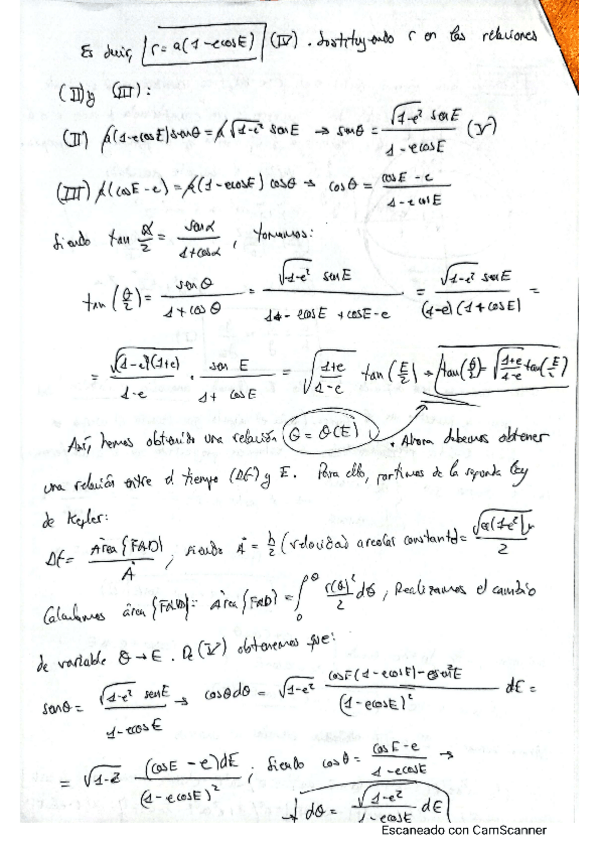 Es decir, r = a(1-ecosE) (IV). Sustituyendo r en las relaciones
(II) y (III):
(II) a(1-ecosE)senθ = a√(1-e²) senE → senθ = √(1-e²) senE / (1-ecosE) (V)
(III) a(cosE-e) = a(1-ecosE) cosθ → cosθ = (cosE-e) / (1-ecosE)
Siendo tan α/2 = senα / (1+cosα), tomamos:
tan(θ/2) = senθ / (1+cosθ) = √(1-e²) senE / (1-ecosE+cosE-e) = √(1-e²) senE / ((1-e)(1+cosE)) =
= √((1-e)(1+e)) / (1-e) · senE / (1+cosE) = √((1+e)/(1-e)) tan(E/2) → tan(θ/2) = √((1+e)/(1-e)) tan(E/2)
Así, hemos obtenido una relación θ = θ(E). Ahora debemos obtener
una relación entre el tiempo (Δt) y E. Para ello, partimos de la segunda ley
de Kepler:
Δt = Área{FAD} / Ȧ, siendo Ȧ = h/2 (velocidad areolar constante) = √(a(1-e²)μ) / 2
Calculamos área {FAD}: Área {FAD} = ∫₀^θ r(θ)²/2 dθ, Realizamos el cambio
de variable θ → E. De (V) obtenemos que:
senθ = √(1-e²) senE / (1-ecosE) → cosθdθ = √(1-e²) (cosE(1-ecosE)-esen²E) / (1-ecosE)² dE =
= √(1-e²) (cosE-e)dE / (1-ecosE)²; siendo cosθ = (cosE-e) / (1-ecosE) →
→ dθ = √(1-e²) / (1-ecosE) dE
Escaneado con CamScanner